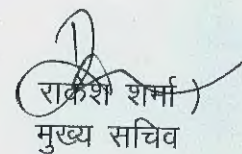 राकेश शर्मा )
मुख्य सचिव